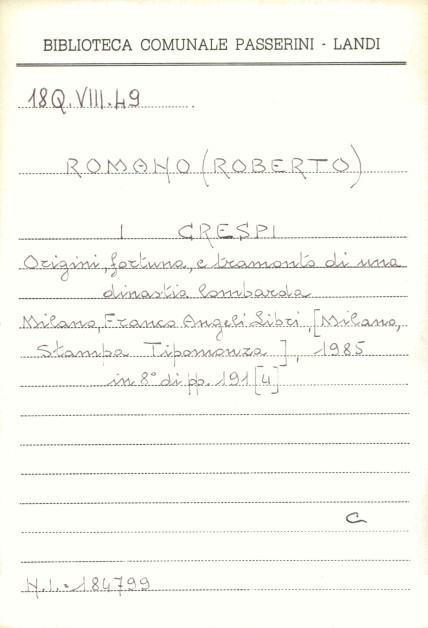 BIBLIOTECA COMUNALE PASSERINI - LANDI
18Q.VIII.49
ROMANO (ROBERTO)
I CRESPI
Origini, fortuna, e tramonto di una
dinastia lombarda
Milano, Franco Angeli Libri, [Milano,
Stampa Tipomonza], 1985
in 8° di pp. 191 [4]
C
N.I. = 184799